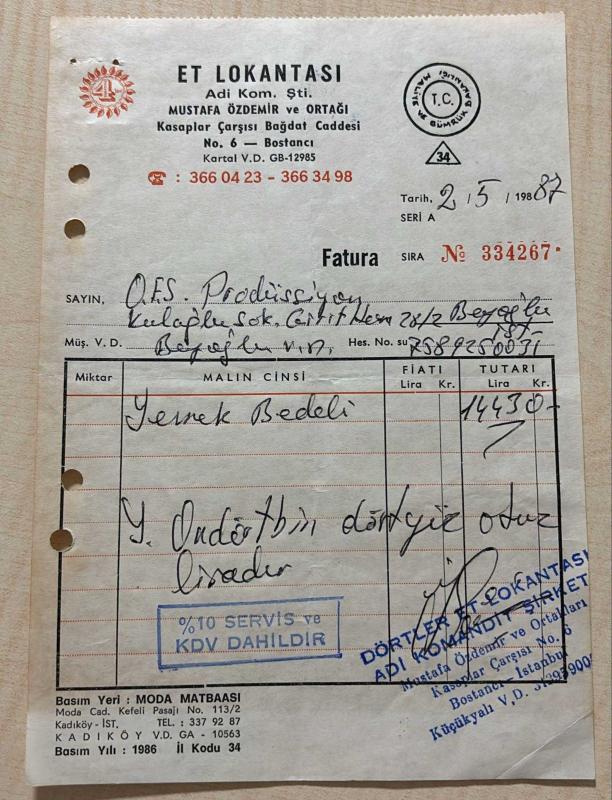 4
ET LOKANTASI
Adi Kom. Şti.
MUSTAFA ÖZDEMİR ve ORTAĞI
Kasaplar Çarşısı Bağdat Caddesi
No. 6 — Bostancı
Kartal V.D. GB-12985
☎ : 366 04 23 - 366 34 98
T.C.
MALİYE VE GÜMRÜK BAKANLIĞI
34
Tarih, 2 / 5 / 198 87
SERİ A
Fatura SIRA № 334267
SAYIN, O.F.S. Prodüssiyon
Kuloğlu sok. 28/2 Beyoğlu
ist
Müş. V. D. Beyoğlu V.D. Hes. No. su 7589250031
Miktar MALIN CİNSİ FİATI TUTARI
Lira Kr. Lira Kr.
Yemek Bedeli 14430-
Y. Ondörtbin dörtyüz otuz
liradır
%10 SERVİS ve
KDV DAHİLDİR
DÖRTLER ET LOKANTASI
ADİ KOMANDİT ŞİRKET
Mustafa Özdemir ve Ortakları
Kasaplar Çarşısı No. 6
Bostancı - İstanbul
Küçükyalı V.D.
Basım Yeri : MODA MATBAASI
Moda Cad. Kefeli Pasajı No. 113/2
Kadıköy - İST. TEL. : 337 92 87
KADIKÖY V.D. GA - 10563
Basım Yılı : 1986 İl Kodu 34